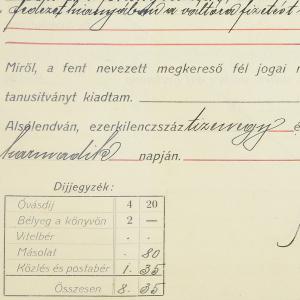 fedezet hiányában a váltóra fizetést
Miről, a fent nevezett megkereső fél jogai
tanusítványt kiadtam.
Alsólendván, ezerkilenczszáz tizenegy é
harmadik napján.
Díjjegyzék:
Óvásdíj 4 20
Bélyeg a könyvön 2 —
Vitelbér . .
Másolat . 80
Közlés és postabér 1. 35
Összesen 8. 35